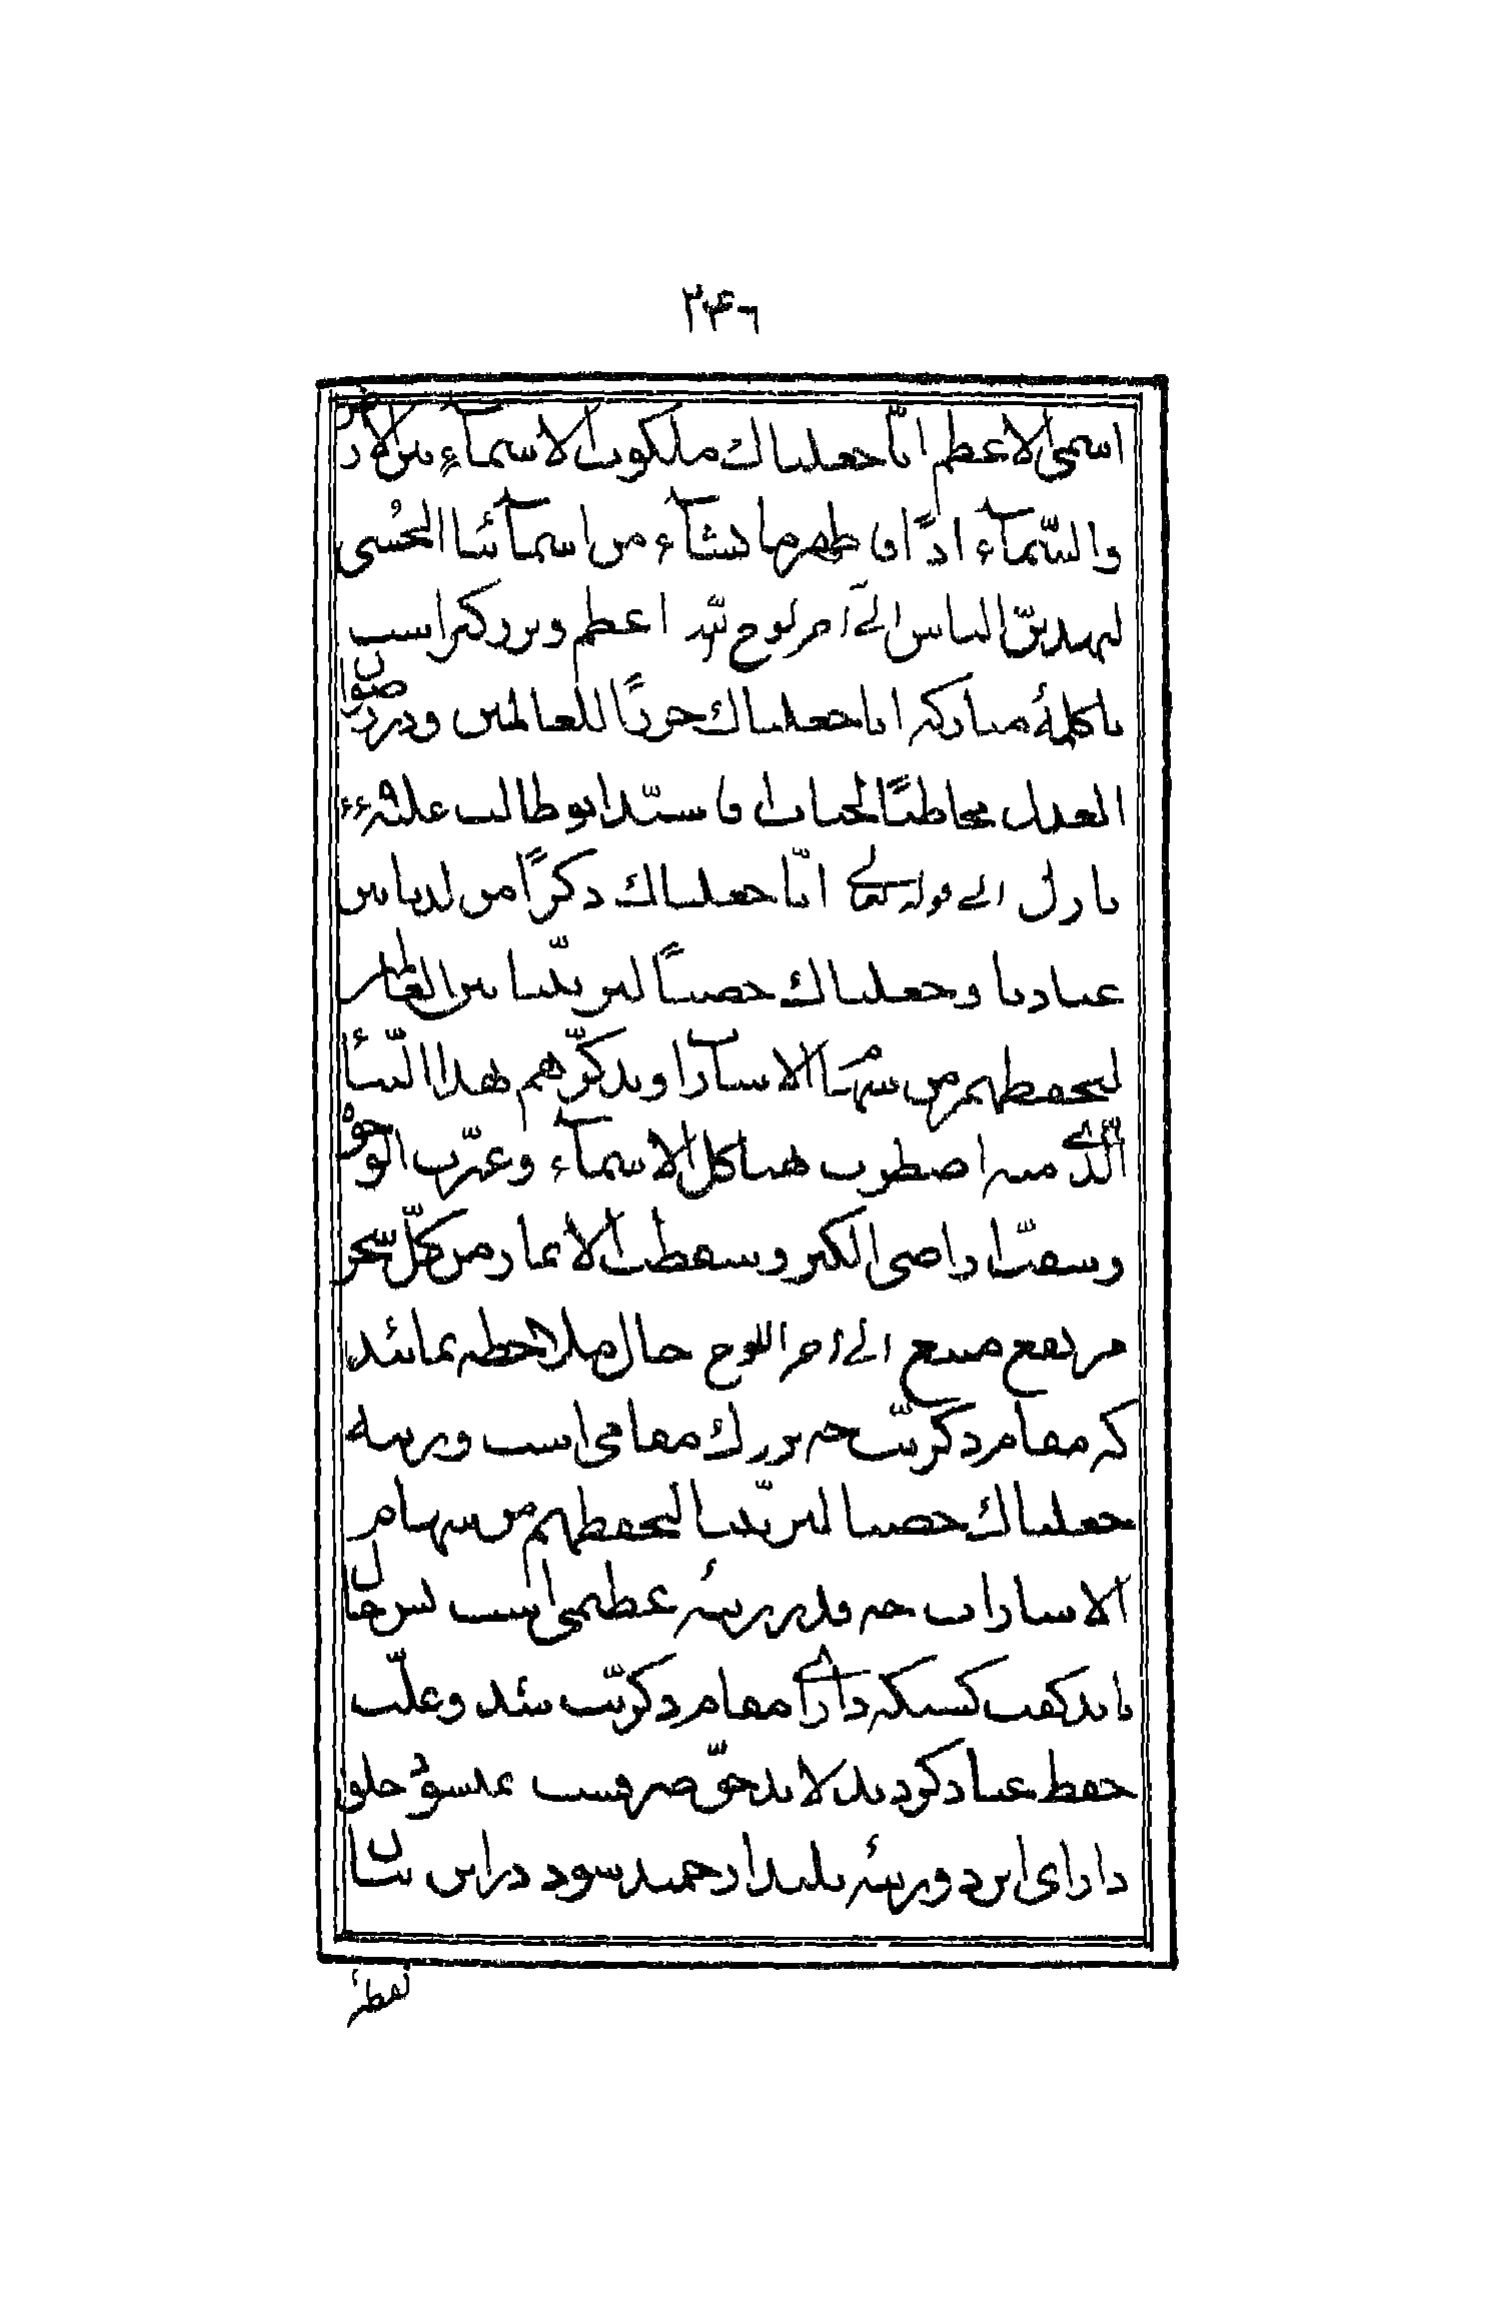 ۲۴۶
اسمی الاعظم انّا جعلناک ملکوت الاسمآء بین الارض
والسّمآء اذًا فاظهر ما نشآء من اسمآئنا الحُسنی
لیهدینّ الناس الی آخر لوح اعظم وبزرکتر است
باکلمهٔ مبارکه انا جعلناک حزنًا للعالمین ودر رضوان
العدل مخاطبًا لجناب اقا سیّد ابوطالب علیه ۶۶۹
نازل الی قوله تعالی انّا جعلناک ذکرًا من لدنا بین
عبادنا وجعلناک حصنًا لبریّتنا بین العالمین
لیحفظهم من سهام الاشارات ویذکّرهم بهذا النّبأ
الّذی منه اضطرب هیاکل الاسمآء وغبّرت الوجوه
وسقّت اراضی الکبر وسقطت الاثمار من کلّ شجر
مرتفع منیع الی آخر اللوح حال ملاحظه نمائید
که مقام ذکریّت چه بزرک مقامی است ورتبه
جعلناک حصنا لبریّتنا لیحفظهم من سهام
الاشارات چه قدر رتبهٔ عظیمی است پس حال
باید کفت کسیکه دارای مقام ذکریّت شد وعلّت
حفظ عباد کردید لابد حقّ صرفست نمیشود خلق
دارای این دو رتبهٔ بلند ارجمند شود در این بیان
نقطهٔ